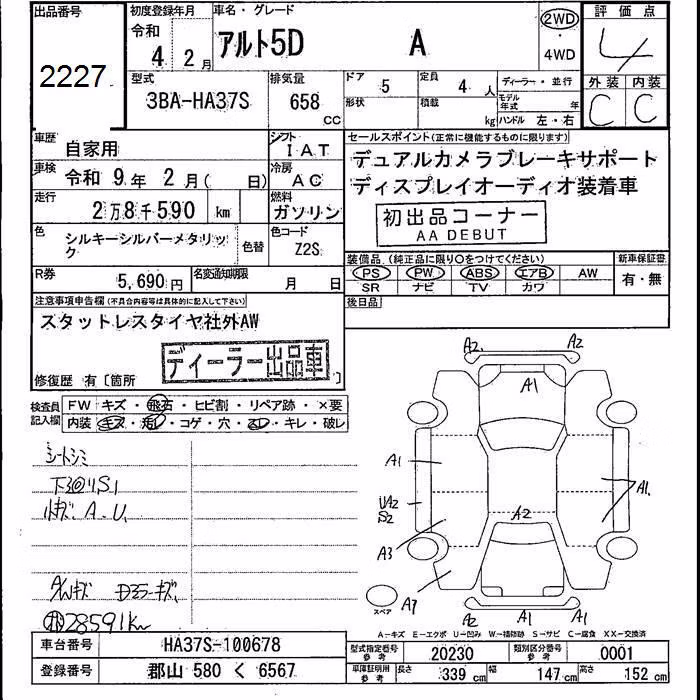 出品番号 初度登録年月 車名・グレード 2WD 評価点
2227 令和 4 2月 アルト5D A ・ 4WD 4
型式 排気量 ドア 5 定員 4人 ディーラー・並行 外装 内装
3BA-HA37S 658 CC 形状 積載 kg モデル年式 年 ハンドル 左・右 C C
車歴 自家用 シフト IAT セールスポイント(正常に機能するものに限ります)
車検 令和 9年 2月( 日) 冷房 AC デュアルカメラブレーキサポート
走行 2万8千590 km 燃料 ガソリン ディスプレイオーディオ装着車
初出品コーナー
AA DEBUT
色 シルキーシルバーメタリック 色替 色コード Z2S
装備品(純正品に限り○をつけてください) 新車保証書
PS PW ABS エアB AW 有・無
SR ナビ TV カワ
R券 5,690円 名変通知期限 月 日
後日品
注意事項申告欄(不具合内容等は具体的に記入して下さい)
スタットレスタイヤ社外AW
ディーラー出品車
修復歴 有〔箇所
検査員記入欄 FW キズ・飛石・ヒビ割・リペア跡・×要
内装 キズ・汚レ・コゲ・穴・スレ・キレ・破レ
シートシミ
A.U.
28591km
A2 A2
A1
A1 A1.
UA2
S2
A2
A3
A2 A1 A1
スペア
A-キズ E-エクボ U-凹み W-補修跡 S-サビ C-腐食 XX-交換済
車台番号 HA37S-100678 型式指定番号 参考 20230 類別区分番号 参考 0001
登録番号 郡山 580 く 6567 車庫証明用 参考 長さ 339 幅 147cm 高さ 152cm